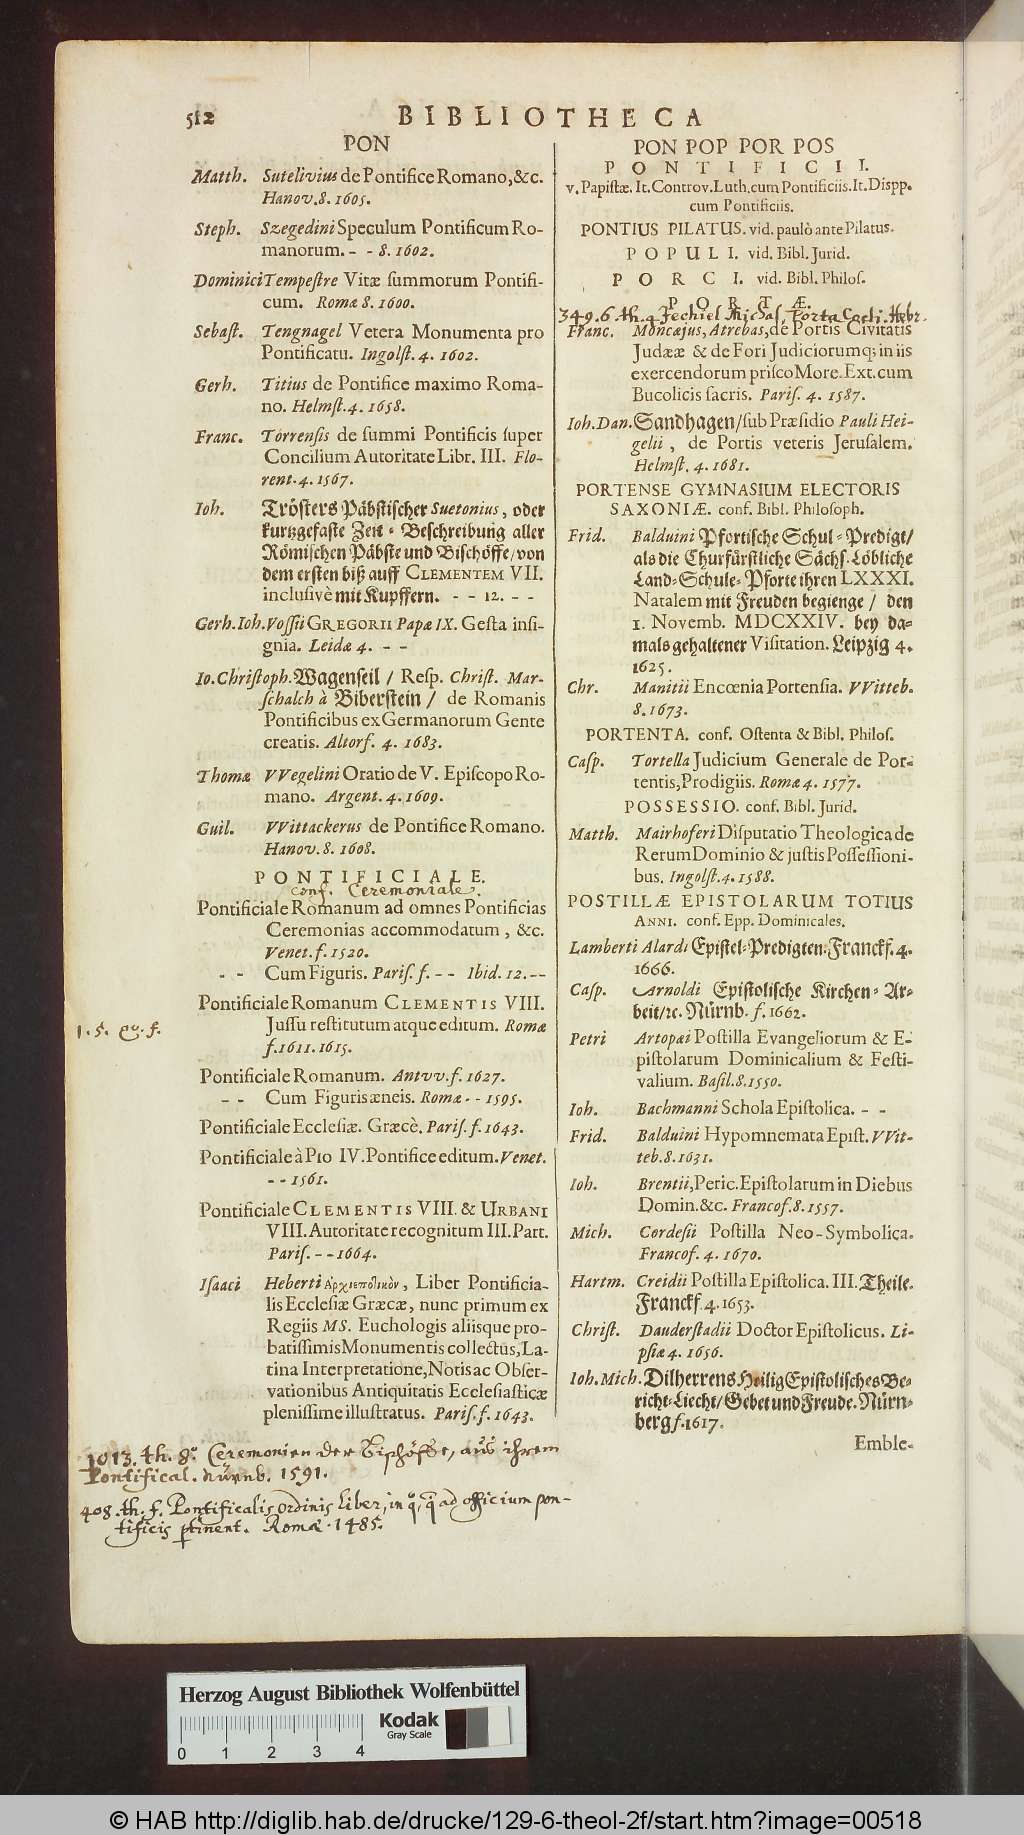 512
BIBLIOTHECA
PON
Matth. Sutelivius de Pontifice Romano, &c.
Hanov. 8. 1605.
Steph. Szegedini Speculum Pontificum Ro-
manorum. - - 8. 1602.
Dominici Tempestre Vitæ summorum Pontifi-
cum. Romæ 8. 1600.
Sebast. Tengnagel Vetera Monumenta pro
Pontificatu. Ingolst. 4. 1602.
Gerh. Titius de Pontifice maximo Roma-
no. Helmst. 4. 1658.
Franc. Torrensis de summi Pontificis super
Concilium Autoritate Libr. III. Flo-
rent. 4. 1567.
Ioh. Trösters Päbstischer Suetonius, oder
kurtzgefaste Zeit-Beschreibung aller
Römischen Päbste und Bischöffe/von
dem ersten biß auff CLEMENTEM VII.
inclusivè mit Kupffern. - - 12. - -
Gerh. Ioh. Vossii GREGORII Papæ IX. Gesta insi-
gnia. Leidæ 4. - -
Io. Christoph. Wagenseil / Resp. Christ. Mar-
schalch à Biberstein / de Romanis
Pontificibus ex Germanorum Gente
creatis. Altorf. 4. 1683.
Thomæ VVegelini Oratio de V. Episcopo Ro-
mano. Argent. 4. 1609.
Guil. VVittackerus de Pontifice Romano.
Hanov. 8. 1608.
PONTIFICIALE.
conf. Ceremoniale.
Pontificiale Romanum ad omnes Pontificias
Ceremonias accommodatum, &c.
Venet. f. 1520.
- - Cum Figuris. Paris. f. - - Ibid. 12. - -
Pontificiale Romanum CLEMENTIS VIII.
Jussu restitutum atque editum. Romæ
f. 1611. 1615.
1. 5. qu. f.
Pontificiale Romanum. Antvv. f. 1627.
- - Cum Figuris æneis. Romæ - - 1595.
Pontificiale Ecclesiæ. Græcè. Paris. f. 1643.
Pontificiale à PIO IV. Pontifice editum. Venet.
- - 1561.
Pontificiale CLEMENTIS VIII. & URBANI
VIII. Autoritate recognitum III. Part.
Paris. - - 1664.
Isaaci Heberti Ἀρχιεπολικὸν, Liber Pontificia-
lis Ecclesiæ Græcæ, nunc primum ex
Regiis MS. Euchologis aliisque pro-
batissimis Monumentis collectus, La-
tina Interpretatione, Notis ac Obser-
vationibus Antiquitatis Ecclesiasticæ
plenissime illustratus. Paris. f. 1643.
1013. th. 8.o Ceremonien der Bischöffe, aus ihrem
Pontifical. Nürnb. 1591.
408. th. f. Pontificalis Ordinis Liber, in q, q ad officium pon-
tificis ptinent. Romæ. 1485.
PON POP POR POS
PONTIFICII.
v. Papistæ. It. Controv. Luth. cum Pontificiis. It. Dispp.
cum Pontificiis.
PONTIUS PILATUS. vid. paulò ante Pilatus.
POPULI. vid. Bibl. Jurid.
PORCI. vid. Bibl. Philos.
PORTÆ.
349. 6. th. 4 Jechiel Michal, Porta Coeli. Hebr.
Franc. Moncæjus, Atrebas, de Portis Civitatis
Judææ & de Fori Judiciorumq; in iis
exercendorum prisco More. Ext. cum
Bucolicis sacris. Paris. 4. 1587.
Ioh. Dan. Sandhagen / sub Præsidio Pauli Hei-
gelii, de Portis veteris Jerusalem.
Helmst. 4. 1681.
PORTENSE GYMNASIUM ELECTORIS
SAXONIÆ. conf. Bibl. Philosoph.
Frid. Balduini Pfortische Schul-Predigt/
als die Churfürstliche Sächs. Löbliche
Land-Schule-Pforte ihren LXXXI.
Natalem mit Freuden begienge / den
1. Novemb. MDCXXIV. bey da-
mals gehaltener Visitation. Leipzig 4.
1625.
Chr. Manitii Encœnia Portensia. VVitteb.
8. 1673.
PORTENTA. conf. Ostenta & Bibl. Philos.
Casp. Tortella Judicium Generale de Por-
tentis, Prodigiis. Romæ 4. 1577.
POSSESSIO. conf. Bibl. Jurid.
Matth. Mairhoferi Disputatio Theologica de
Rerum Dominio & justis Possessioni-
bus. Ingolst. 4. 1588.
POSTILLÆ EPISTOLARUM TOTIUS
ANNI. conf. Epp. Dominicales.
Lamberti Alardi Epistel-Predigten. Franckf. 4.
1666.
Casp. Arnoldi Epistolische Kirchen-Ar-
beit/ɾc. Nürnb. f. 1662.
Petri Artopæi Postilla Evangeliorum & E-
pistolarum Dominicalium & Festi-
valium. Basil. 8. 1550.
Ioh. Bachmanni Schola Epistolica. - -
Frid. Balduini Hypomnemata Epist. VVit-
teb. 8. 1631.
Ioh. Brentii, Peric. Epistolarum in Diebus
Domin. &c. Francof. 8. 1557.
Mich. Cordesii Postilla Neo-Symbolica.
Francof. 4. 1670.
Hartm. Creidii Postilla Epistolica. III. Theile.
Franckf. 4. 1653.
Christ. Dauderstadii Doctor Epistolicus. Li-
psiæ 4. 1656.
Ioh. Mich. Dilherrens Heilig Epistolisches Be-
richt-Liecht/Gebet und Freude. Nürn-
berg f. 1617.
Emble-
Herzog August Bibliothek Wolfenbüttel
Kodak
Gray Scale
0 1 2 3 4
© HAB http://diglib.hab.de/drucke/129-6-theol-2f/start.htm?image=00518